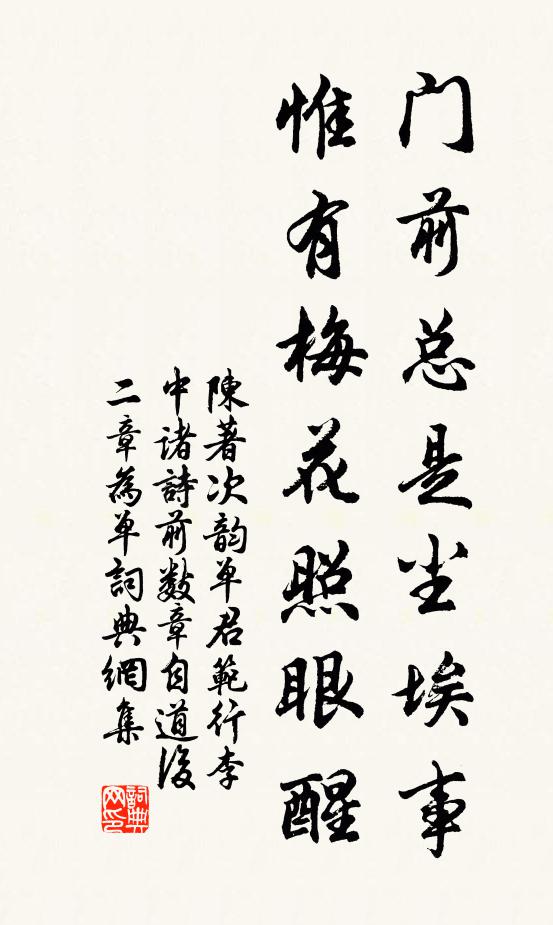 门前总是尘埃事
惟有梅花照眼醒
陳著次韵单君範行李
中诸詩前数章自道後
二章為单詞典網集
詞典
网印